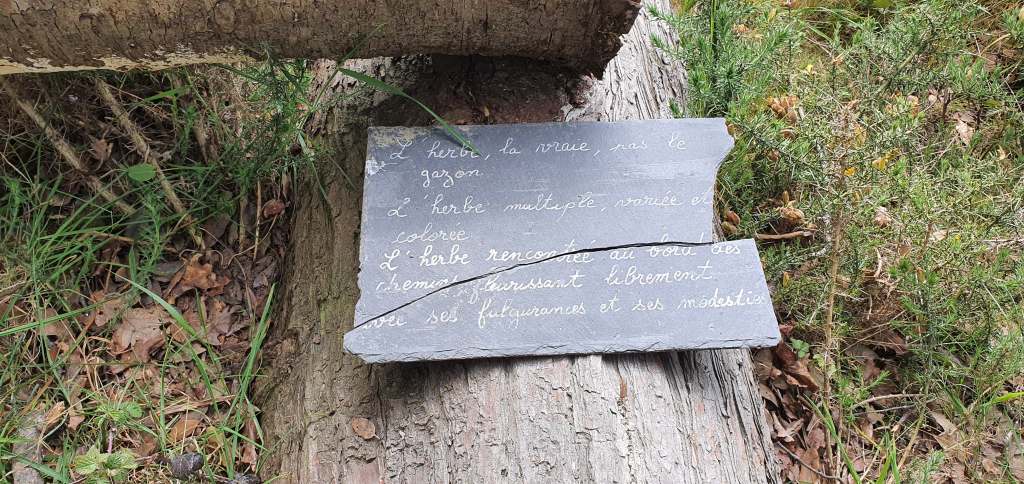 L'herbe, la vraie, pas le
gazon
L'herbe multiple, variée et
colorée
L'herbe rencontrée au bord des
chemins, fleurissant librement
avec ses fulgurances et ses modesties